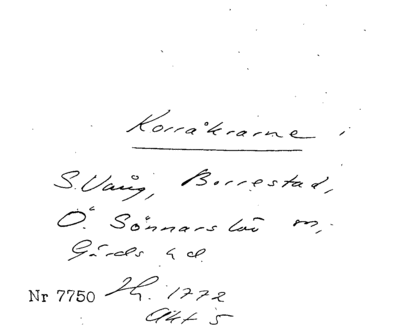 Korråkrarne i
S. Vång, Borrestad,
Ö. Sönnarslöv m,
Gärds hd.
Nr 7750 1772
Akt 5